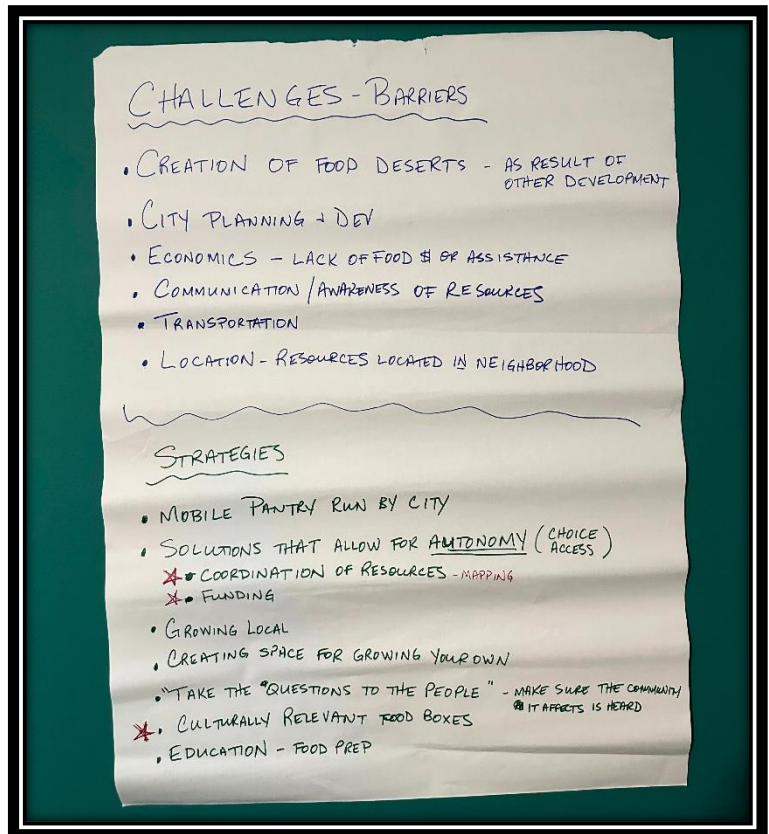 CHALLENGES - BARRIERS
• CREATION OF FOOD DESERTS - AS RESULT OF
OTHER DEVELOPMENT
• CITY PLANNING + DEV
• ECONOMICS - LACK OF FOOD $ OR ASSISTANCE
• COMMUNICATION / AWARENESS OF RESOURCES
• TRANSPORTATION
• LOCATION - RESOURCES LOCATED IN NEIGHBORHOOD
STRATEGIES
• MOBILE PANTRY RUN BY CITY
• SOLUTIONS THAT ALLOW FOR AUTONOMY (CHOICE
ACCESS)
☆• COORDINATION OF RESOURCES - MAPPING
☆• FUNDING
• GROWING LOCAL
• CREATING SPACE FOR GROWING YOUR OWN
• "TAKE THE "QUESTIONS TO THE PEOPLE" - MAKE SURE THE COMMUNITY
IT AFFECTS IS HEARD
☆• CULTURALLY RELEVANT FOOD BOXES
• EDUCATION - FOOD PREP